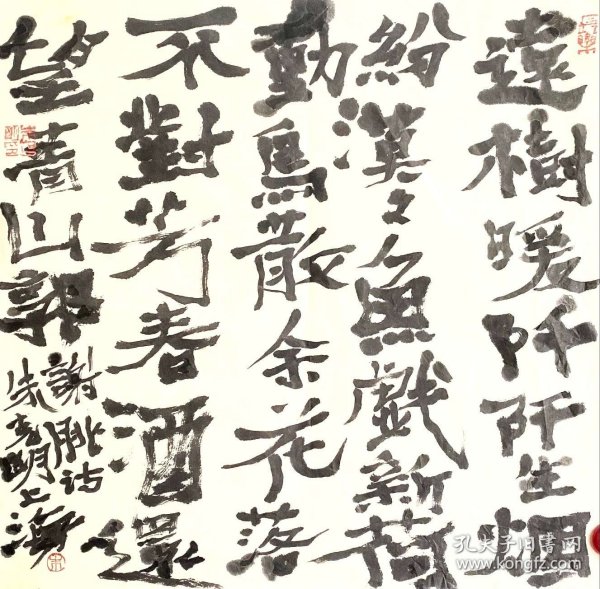 遠樹暖阡阡生烟
紛漠々魚戲新荷
動鳥散余花落
不對芳春酒還
望青山郭
謝朓詩
朱明上海
孔夫子旧书网
www.kongfz.com